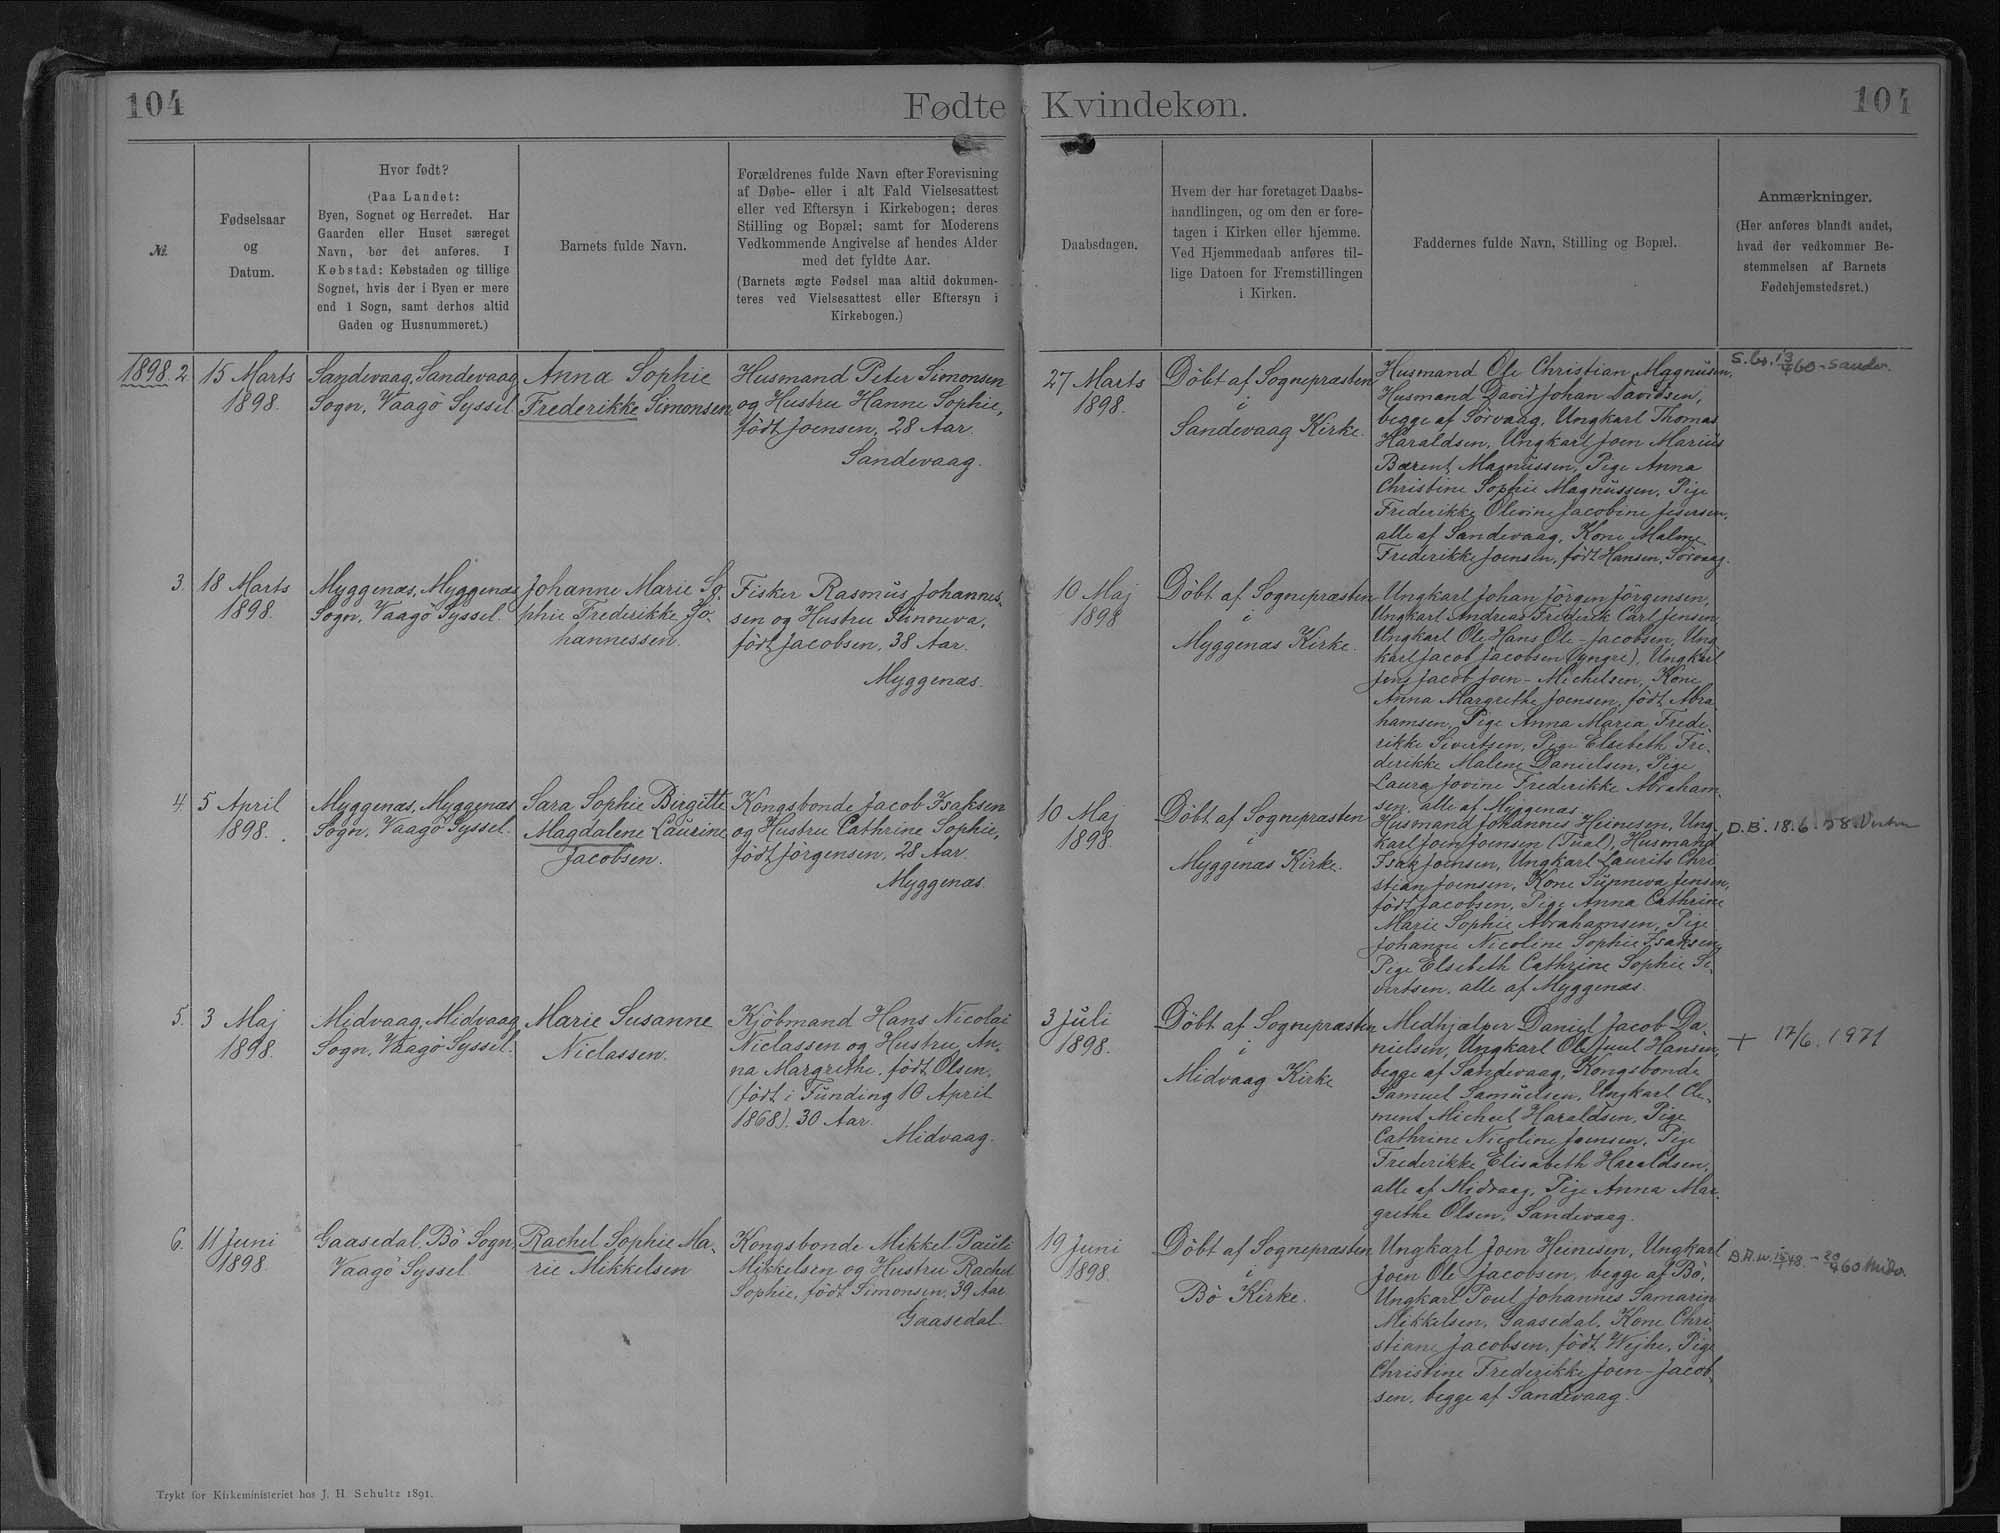 104
Fødte Kvindekøn.
104
№.
Fødselsaar
og
Datum.
Hvor født?
(Paa Landet:
Byen, Sognet og Herredet. Har
Gaarden eller Huset særeget
Navn, bør det anføres. I
Købstad: Købstaden og tillige
Sognet, hvis der i Byen er mere
end 1 Sogn, samt derhos altid
Gaden og Husnummeret.)
Barnets fulde Navn.
Forældrenes fulde Navn efter Forevisning
af Døbe- eller i alt Fald Vielsesattest
eller ved Eftersyn i Kirkebogen; deres
Stilling og Bopæl; samt for Moderens
Vedkommende Angivelse af hendes Alder
med det fyldte Aar.
(Barnets ægte Fødsel maa altid dokumen-
teres ved Vielsesattest eller Eftersyn i
Kirkebogen.)
Daabsdagen.
Hvem der har foretaget Daabs-
handlingen, og om den er fore-
tagen i Kirken eller hjemme.
Ved Hjemmedaab anføres til-
lige Datoen for Fremstillingen
i Kirken.
Faddernes fulde Navn, Stilling og Bopæl.
Anmærkninger.
(Her anføres blandt andet,
hvad der vedkommer Be-
stemmelsen af Barnets
Fødehjemstedsret.)
1898. 2
15 Marts
1898.
Sandevaag, Sandevaag
Sogn, Vaagö Syssel
Anna Sophie
Frederikke Simonsen
Husmand Peter Simonsen
og Hustru Hanne Sophie,
födt Joensen, 28 Aar.
Sandevaag.
27 Marts
1898.
Döbt af Sognepræsten
i
Sandevaag Kirke.
Husmand Ole Christian Magnusen,
Husmand David Johan Davidsen,
begge af Sörvaag, Ungkarl Thomas
Haraldsen, Ungkarl Joen Marius
Bærent Magnussen, Pige Anna
Christine Sophie Magnussen, Pige
Frederikke Olevine Jacobine
alle af Sandevaag, Kone Malene
Frederikke Joensen, födt Hansen, Sörvaag.
60 - Sandev.
3.
18 Marts
1898.
Myggenæs, Myggenæs
Sogn, Vaagö Syssel.
Johanne Marie So-
phie Frederikke Jo-
hannessen.
Fisker Rasmus Johannes-
sen og Hustru Sunneva,
födt Jacobsen, 38 Aar.
Myggenæs.
10 Maj
1898
Döbt af Sognepræsten
i
Myggenæs Kirke.
Ungkarl Johan Jörgen Jörgensen,
Ungkarl Andreas Frederik Carl Jensen,
Ungkarl Ole Hans Ole-Jacobsen, Ung-
karl Jacob Jacobsen (yngre), Ungkarl
Jens Jacob Joen-Michelsen, Kone
Anna Margrethe Joensen, födt Abra-
hamsen, Pige Anna Maria Frede-
rikke Sivertsen, Pige Elsebeth Fre-
derikke Malene Danielsen, Pige
Laura Jovine Frederikke Abraham-
sen, alle af Myggenæs.
4.
5 April
1898.
Myggenæs, Myggenæs
Sogn, Vaagö Syssel.
Sara Sophie Birgitte
Magdalene Laurine
Jacobsen.
Kongsbonde Jacob Isaksen
og Hustru Cathrine Sophie,
födt Jörgensen, 28 Aar.
Myggenæs.
10 Maj
1898.
Döbt af Sognepræsten
i
Myggenæs Kirke.
Husmand Johannes Heinesen, Ung-
karl Joen Joensen (Tual), Husmand
Isak Joensen, Ungkarl Laurits Chri-
stian Joensen, Kone Sunneva Jensen,
födt Jacobsen, Pige Anna Cathrine
Marie Sophie Abrahamsen, Pige
Johanne Nicoline Sophie Isaksen,
Pige Elsebeth Cathrine Sophie Si-
vertsen, alle af Myggenæs.
D.B. 18.6.58
5.
3 Maj
1898.
Midvaag, Midvaag
Sogn, Vaagö Syssel.
Marie Susanne
Niclassen.
Kjöbmand Hans Nicolai
Niclassen og Hustru An-
na Margrethe, födt Olsen,
(födt i Funding 10 April
1868), 30 Aar.
Midvaag.
3 Juli
1898.
Döbt af Sognepræsten
i
Midvaag Kirke
Medhjælper Daniel Jacob Da-
nielsen, Ungkarl Ole Juul Hansen,
begge af Sandevaag, Kongsbonde
Samuel Samuelsen, Ungkarl Cle-
ment Michael Haraldsen, Pige
Cathrine Nicoline Joensen, Pige
Frederikke Elisabeth Haraldsen,
alle af Midvaag, Pige Anna Mar-
grethe Olsen, Sandevaag.
+ 17/6. 1971
6.
11 Juni
1898.
Gaasedal, Bö Sogn,
Vaagö Syssel
Rachel Sophie Ma-
rie Mikkelsen
Kongsbonde Mikkel Pauli
Mikkelsen og Hustru Rachel
Sophie, födt Simonsen, 39 Aar.
Gaasedal.
19 Juni
1898.
Döbt af Sognepræsten
i
Bö Kirke.
Ungkarl Joen Heinesen, Ungkarl
Joen Ole Jacobsen, begge af Bö,
Ungkarl Poul Johannes Samarin
Mikkelsen, Gaasedal, Kone Chri-
stiane Jacobsen, födt Wejhe, Pige
Christine Frederikke Joen-Jacob-
sen, begge af Sandevaag.
Trykt for Kirkeministeriet hos J. H. Schultz 1891.